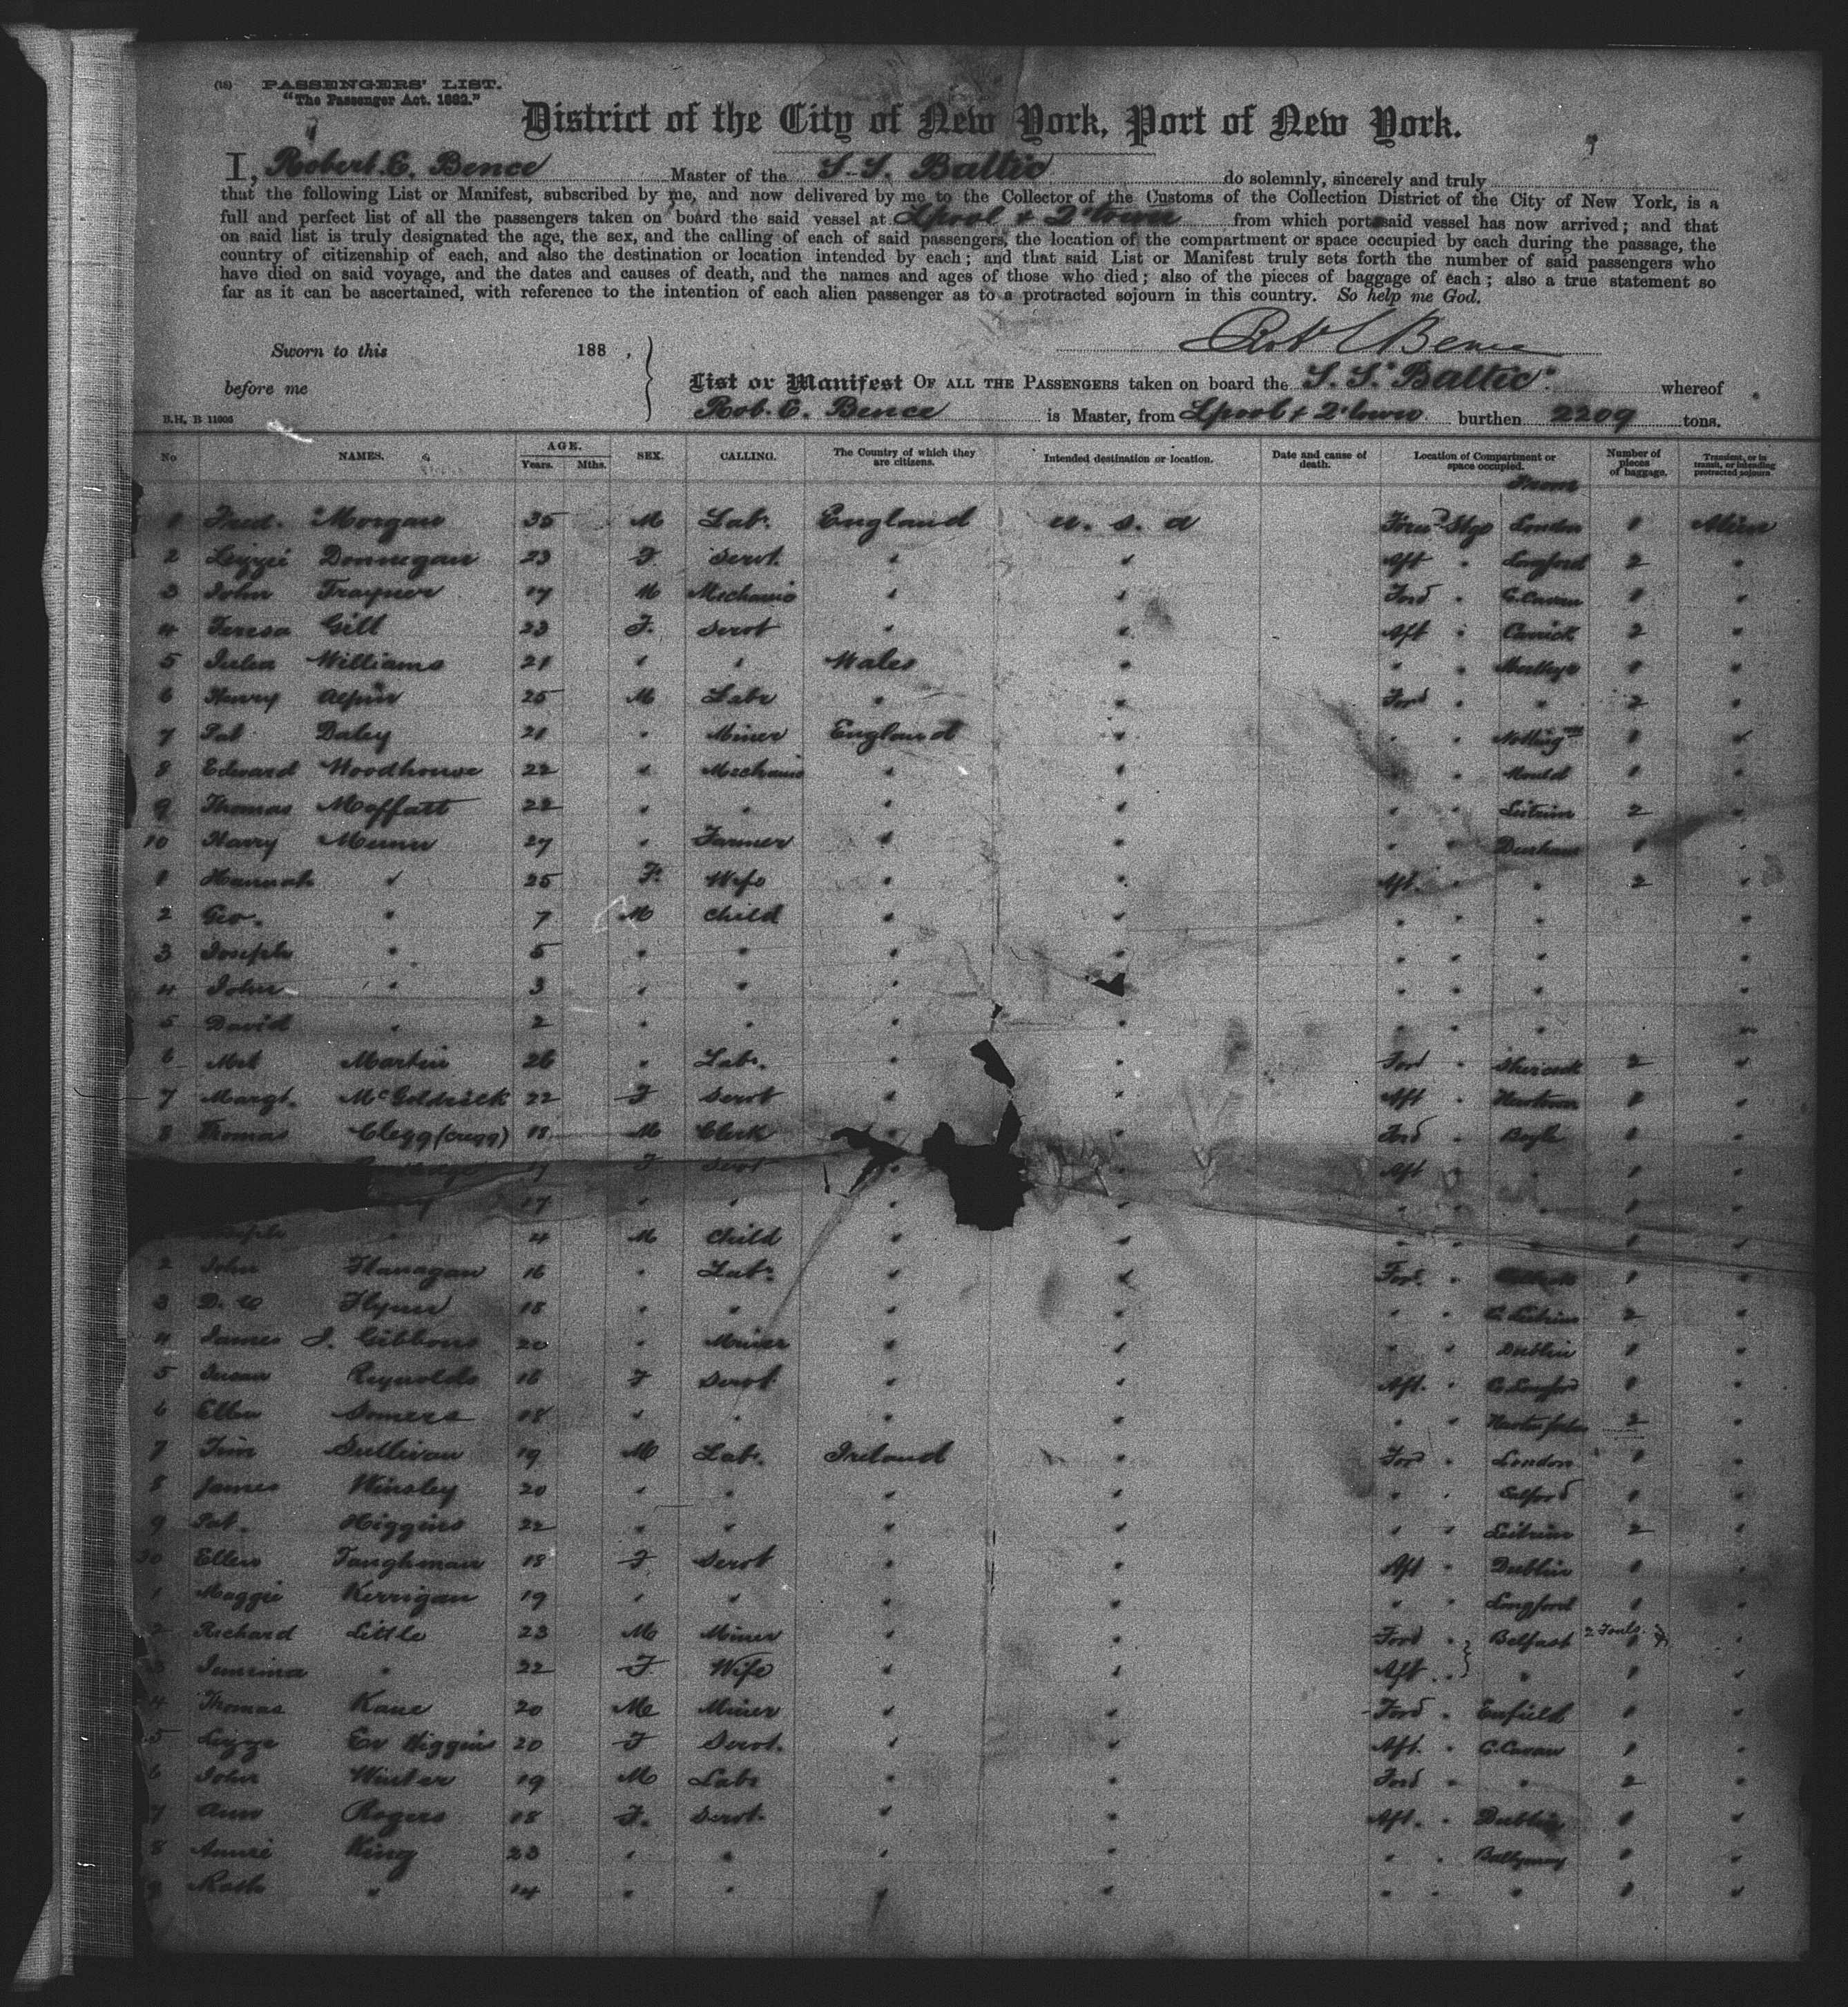 (15) PASSENGERS' LIST.
"The Passenger Act, 1882."
District of the City of New York, Port of New York.
I, Robert. E. Bence Master of the S.S. Baltic do solemnly, sincerely and truly
that the following List or Manifest, subscribed by me, and now delivered by me to the Collector of the Customs of the Collection District of the City of New York, is a
full and perfect list of all the passengers taken on board the said vessel at Lpool & Q'town from which port said vessel has now arrived; and that
on said list is truly designated the age, the sex, and the calling of each of said passengers, the location of the compartment or space occupied by each during the passage, the
country of citizenship of each, and also the destination or location intended by each; and that said List or Manifest truly sets forth the number of said passengers who
have died on said voyage, and the dates and causes of death, and the names and ages of those who died; also of the pieces of baggage of each; also a true statement so
far as it can be ascertained, with reference to the intention of each alien passenger as to a protracted sojourn in this country. So help me God.
Robt E Bence
Sworn to this 188 ,
before me
List or Manifest OF ALL THE PASSENGERS taken on board the S.S. "Baltic" whereof
Rob. E. Bence is Master, from Lpool & Q'town burthen 2209 tons.
B.H. B 11006
No NAMES. AGE. Years. Mths. SEX. CALLING. The Country of which they are citizens. Intended destination or location. Date and cause of death. Location of Compartment or space occupied. Number of pieces of baggage. Transient, or in transit, or intending protracted sojourn
From
1 Fred. Morgan 35 M Labr. England U.S.A Stge London 1 Alien
2 Lizzie Donnegan 23 F Servt. " " Aft " Longford 2 "
3 John Traynor 17 M Mechanic " " Ford " C. Cavan 1 "
4 Teresa Gill 23 F. Servt " " Aft " Carrick 2 "
5 Williams 21 " " Wales " " " 1 "
6 Henry 25 M Labr " " Ford " " 2 "
7 Pat Daley 21 " Miner England " " " 1 "
8 Edward Woodhouse 22 " Mechanic " " " " Mould 1 "
9 Thomas Moffatt 22 " " " " " " Leitrim 2 "
10 Harry Munn 27 " Farmer " " " " Durham 1 "
1 Hannah " 25 F. Wife " " Aft. " " 2 "
2 Geo. " 7 M Child " " " " " "
3 Joseph " 5 " " " " " " " "
4 John " 3 " " " " " " "
5 David " 2 " " " " " " " "
6 Martin 26 " Labr. " " Ford " 2 "
7 Margt. McGoldrick 22 F Servt " " Aft " 1 "
8 Thomas Clegg (Cregg) 18 M Clerk " " Ford " Boyle 1 "
F Servt " " Aft " 1 "
17 " " " " " " 1 "
4 M Child " " " " 1 "
2 John Flanagan 16 " Labr. " " Ford. " 1 "
3 Flynn 18 " " " " " " C. Leitrim 2 "
4 James J. Gibbons 20 " Miner " " " " Dublin 1 "
5 Susan Reynolds 16 F Servt " " Aft. " C. Longford 1 "
6 Ellen Somers 18 " " " " " " 2 "
7 Tim Sullivan 19 M Labr. Ireland " Ford " London 1 "
8 James Winsley 20 " " " " " " Salford 1 "
9 Pat. Higgins 22 " " " " " " Leitrim 2 "
30 Ellen Taughman 18 F Servt " " Aft " Dublin 1 "
1 Maggie Kerrigan 19 " " " " " " Longford 1 "
2 Richard Little 23 M Miner " " Ford " Belfast 1 "
3 Jemima " 22 F Wife " " Aft " " 1 "
4 Thomas Kane 20 M Miner " " Ford " Enfield 1 "
5 Lizzie Higgins 20 F Servt. " " Aft. " C. Cavan 1 "
6 John Winter 19 M Labr " " Ford " " 2 "
7 Ann Rogers 18 F. Servt. " " Aft. " Dublin 1 "
8 Annie King 23 " " " " " " 1 "
9 Kath " 14 " " " " " " " 1 "